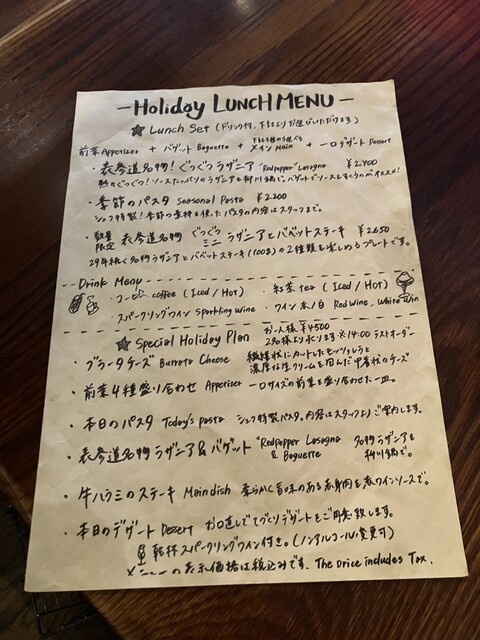 - Holiday LUNCH MENU -
★ Lunch Set (ドリンク付、下記よりお選びいただけます)
前菜 Appetizer + バゲット Baguette + 下記3種の中から メイン Main + 一口デザート Dessert
・表参道名物！ぐつぐつラザニア "Redpepper" Lasagna ¥2,400
熱々ぐつぐつ！ソースたっぷりのラザニアを柳川鍋で。バゲットでソースをすくうのがオススメ！
・季節のパスタ Seasonal Pasta ¥2,200
シェフ特製！季節の素材を使ったパスタの内容はスタッフまで。
・数量限定 表参道名物 ぐつぐつミニラザニアとバベットステーキ ¥2,650
29年続く名物ラザニアとバベットステーキ(100g)の2種類を楽しめるプレートです。
Drink Menu
・コーヒー coffee (Iced / Hot) ・紅茶 tea (Iced / Hot)
・スパークリングワイン Sparkling wine ・ワイン 赤/白 Red Wine, White Win
★ Special Holiday Plan お一人様 ¥4500
2名様より承ります ※14:00 ラストオーダー
・ブラータチーズ Burrata Cheese 繊維状にカットしたモッツァレラと
濃厚な生クリームを包んだ巾着状のチーズ
・前菜4種盛り合わせ Appetizer 一口サイズの前菜を盛り合わせた一皿。
・本日のパスタ Today's pasta シェフ特製パスタ。内容はスタッフよりご案内します。
・表参道名物ラザニア&バゲット "Redpepper Lasagna & Baguette 名物ラザニアを
柳川鍋で。
・牛ハラミのステーキ Main dish 柔らかく旨味のある赤身肉を赤ワインソースで。
・本日のデザート Dessert お口直しで手づくりデザートをご用意致します。
乾杯スパークリングワイン付き。(ノンアルコール変更可)
メニューの表示価格は税込みです。The price includes Tax.